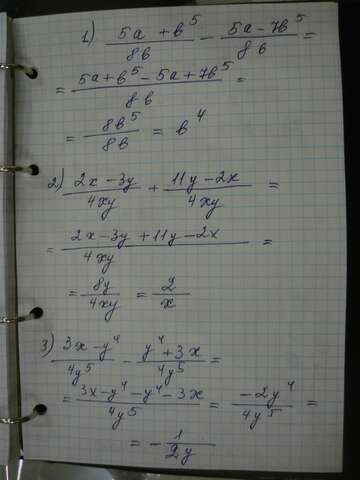 1) (5a + b⁵)/(8b) − (5a − 7b⁵)/(8b) =
= (5a + b⁵ − 5a + 7b⁵)/(8b) =
= 8b⁵/8b = b⁴
2) (2x − 3y)/(4xy) + (11y − 2x)/(4xy) =
= (2x − 3y + 11y − 2x)/(4xy) =
= 8y/4xy = 2/x
3) (3x − y⁴)/(4y⁵) − (y⁴ + 3x)/(4y⁵) =
= (3x − y⁴ − y⁴ − 3x)/(4y⁵) = (−2y⁴)/(4y⁵) =
= − 1/2y